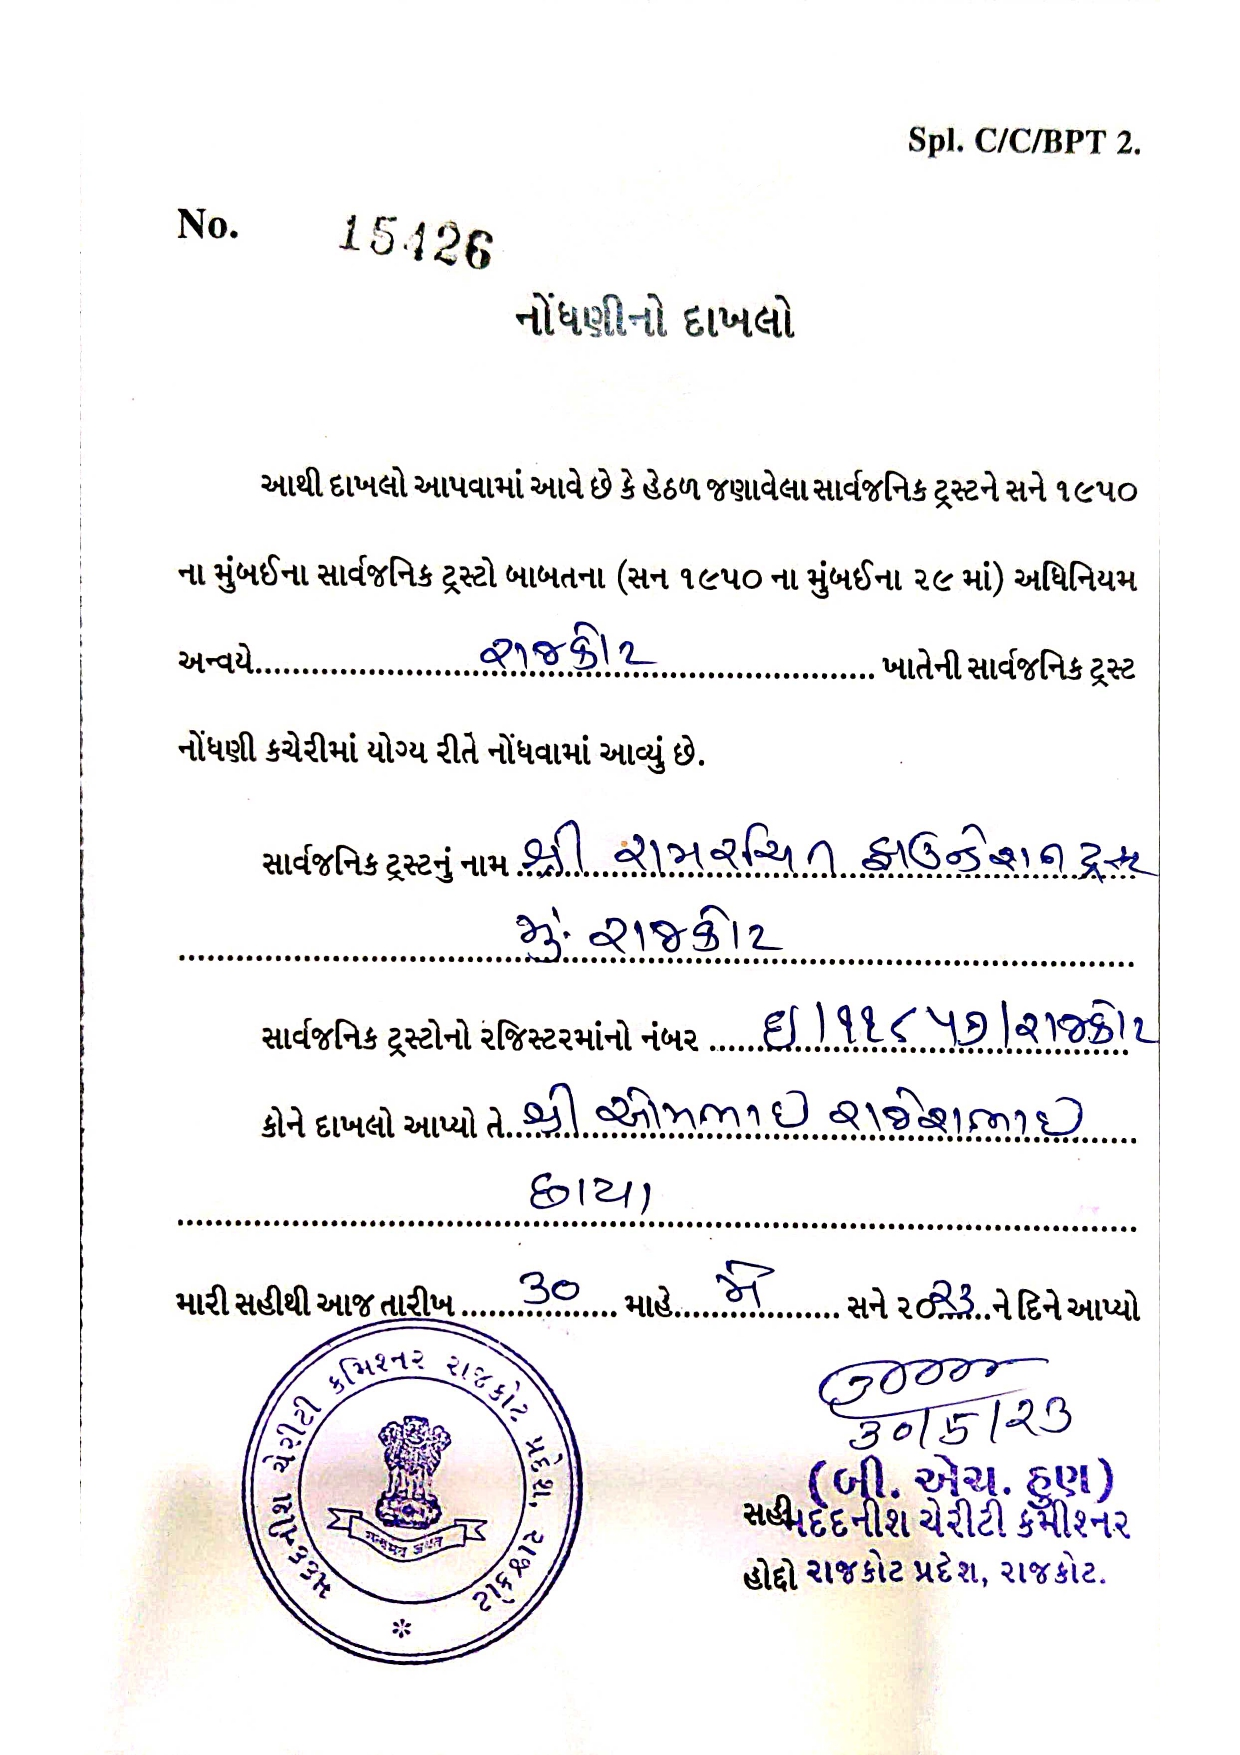 Spl. C/C/BPT 2.
No. 15426
નોંધણીનો દાખલો
આથી દાખલો આપવામાં આવે છે કે હેઠળ જણાવેલા સાર્વજનિક ટ્રસ્ટને સને ૧૯૫૦
ના મુંબઈના સાર્વજનિક ટ્રસ્ટો બાબતના (સન ૧૯૫૦ ના મુંબઈના ૨૯ માં) અધિનિયમ
અન્વયે રાજકોટ ખાતેની સાર્વજનિક ટ્રસ્ટ
નોંધણી કચેરીમાં યોગ્ય રીતે નોંધવામાં આવ્યું છે.
સાર્વજનિક ટ્રસ્ટનું નામ શ્રી રામરચિત ફાઉન્ડેશન ટ્રસ્ટ
મું. રાજકોટ
સાર્વજનિક ટ્રસ્ટોનો રજિસ્ટરમાંનો નંબર ઇ/૧૧૮૫૭/રાજકોટ
કોને દાખલો આપ્યો તે શ્રી ઓમભાઇ રાજેશભાઇ
છાયા
મારી સહીથી આજ તારીખ ૩૦ માહે મે સને ૨૦૨૩ ને દિને આપ્યો
૩૦/5/૨૩
(બી. એચ. હુણ)
સહી મદદનીશ ચેરીટી કમીશ્નર
હોદ્દો રાજકોટ પ્રદેશ, રાજકોટ.
મદદનીશ ચેરીટી કમિશ્નર રાજકોટ પ્રદેશ, રાજકોટ